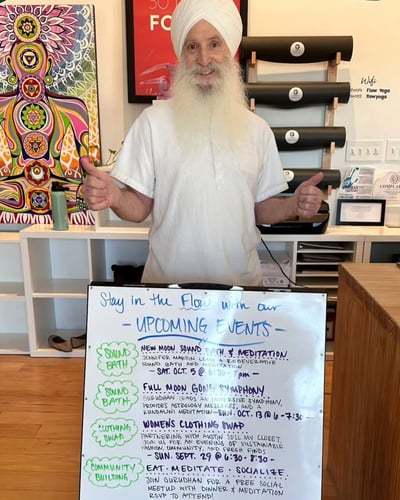 SO
FO
Wifi
Flow Yoga
flowyoga
COMPLA
Stay in the Flow with our
- UPCOMING EVENTS -
SOUND BATH
NEW MOON SOUND BATH & MEDITATION
JENNIFER MARTIN LEADS A REGENERATIVE
SOUND BATH AND MEDITATION
- SAT. OCT. 5 @ 6:30 - 8pm -
SOUND BATH
FULL MOON GONG SYMPHONY
GURUDHAN LEADS AN IMMERSIVE SYMPHONY,
PROVIDES ASTROLOGY MESSAGES, AND A
KUNDALINI MEDITATION - SUN. OCT. 13 @ 6 - 7:30 -
CLOTHING SWAP
WOMEN'S CLOTHING SWAP
PARTNERING WITH AUSTIN SELL MY CLOSET
JOIN US FOR AN EVENING OF SUSTAINABLE
FASHION, COMMUNITY, AND FRESH FINDS
SUN. SEPT. 29 @ 6:30 - 8:30 -
COMMUNITY BUILDING
EAT · MEDITATE · SOCIALIZE
JOIN GURUDHAN FOR A FREE SOCIAL
MEETUP WITH DINNER & MEDITATION
RSVP TO ATTEND!